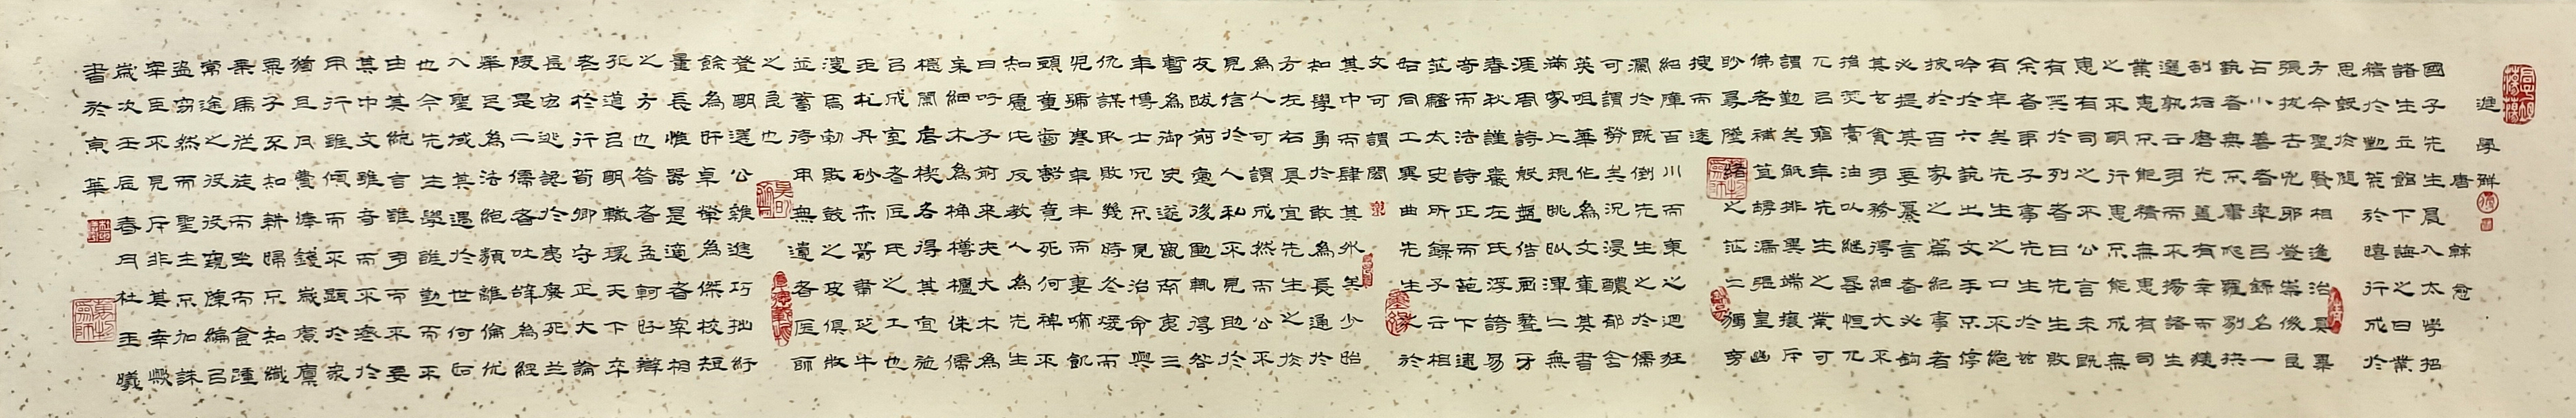 進學解
唐
韓愈
國子先生晨入太學招
諸生立館下誨之曰業
精於勤荒於嬉行成於
思毀於隨
方今聖賢相逢治具畢
張拔去兇邪登崇俊良
占小善者率以錄名一
藝者無不庸爬羅剔抉
刮垢磨光蓋有幸而獲
選孰云多而不揚諸生
業患不能精無患有司
之不明行患不能成無
患有司之不公言未既
有笑於列者曰先生欺
余者弟子事先生於茲
有年矣先生之口不絕
吟於六藝之文手不停
披於百家之篇紀事者
必提其要纂言者必鉤
其玄貪多務得細大不
捐焚膏油以繼晷恒兀
兀以窮年先生之業可
謂勤矣觝排異端攘斥
佛老補苴罅漏張皇幽
眇尋墜緒之茫茫獨旁
搜而遠
紹障百川而東之迴狂
瀾於既倒先生之於儒
可謂勞矣沉浸醲郁含
英咀華作為文章其書
滿家上規姚姒渾渾無
涯周誥殷盤佶屈聱牙
春秋謹嚴左氏浮誇易
奇而法詩正而葩下逮
莊騷太史所錄子雲相
如同工異曲先生之於
文可謂閎
其中而肆其外矣少始
知學勇於敢為長通於
方左右具宜先生之於
為人可謂成然而公不
見信於人私不見助於
友跋前躓後動輒得咎
暫為御史遂竄南夷三
年博士冗不見治命與
仇謀取敗幾時冬暖而
兒號寒年豐而妻啼飢
頭童齒豁竟死何裨不
知慮此反教人為先生
曰吁子來前夫大木為
杗細木為桷欂櫨侏儒
椳闑扂楔各得其宜施
以成室者匠氏之工也
玉札丹砂赤箭青芝牛
溲馬勃敗鼓之皮俱收
並蓄待用無遺者醫師
之良也
登明選公雜進巧拙紆
餘為妍卓犖為傑校短
量長惟器是適者宰相
之方也昔者孟軻好辯
孔道以明轍環天下卒
老於行荀卿守正大論
是宏逃讒於楚廢死蘭
陵是二儒者吐辭為經
舉足為法絕類離倫優
入聖域其遇於世何如
也今先生學雖勤而不
由其統言雖多而不要
其中文雖奇而不濟於
用行雖修而不顯於眾
猶且月費俸錢歲靡廩
粟子不知耕婦不知織
乘馬從徒安坐而食踵
常途之役役窺陳編以
盜竊然而聖主不加誅
宰臣不見斥非其幸歟
歲次壬辰春月杜玉曦
書於京華